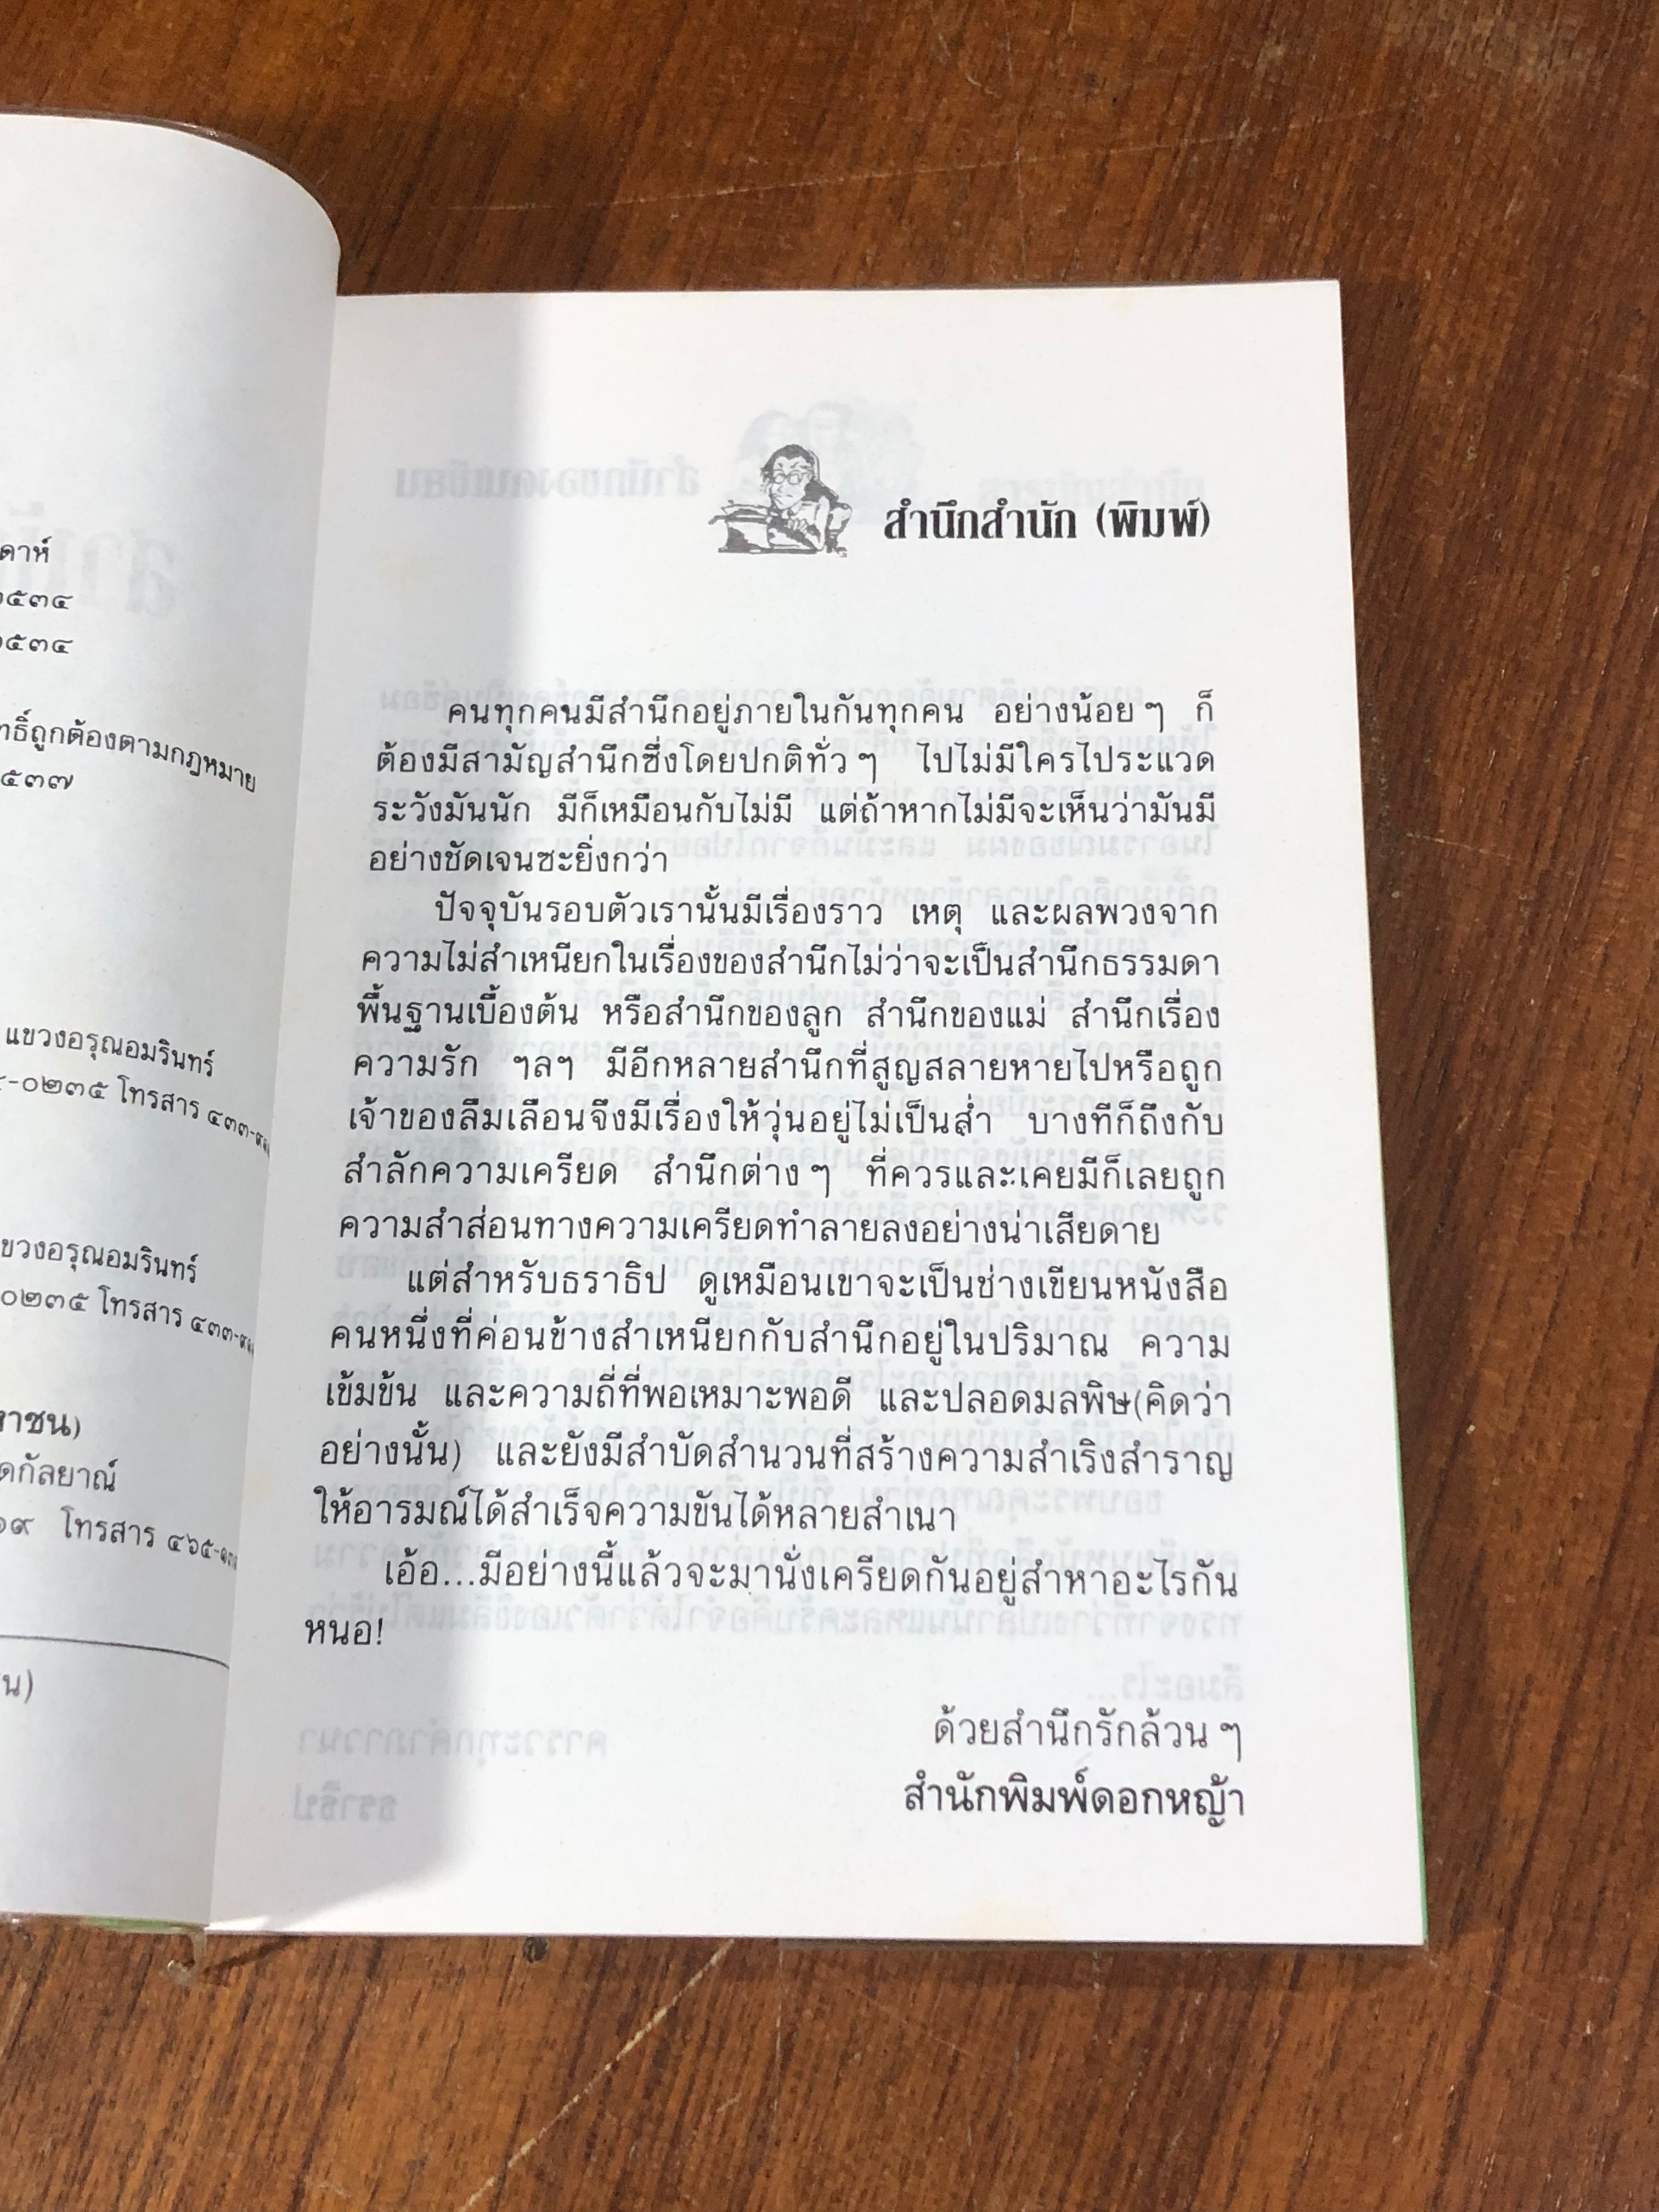 ดาห์
๕๓๔
๕๓๔
ถูกต้องตามกฎหมาย
๕๓๗
แขวงอรุณอมรินทร์
-๐๒๓๕ โทรสาร ๔๓๓-
ขวงอรุณอมรินทร์
๐๒๓๕ โทรสาร ๔๓๓-
าชน)
ดกัลยาณ์
๑๙ โทรสาร ๔๖๕-
น)
สำนึกสำนัก (พิมพ์)
คนทุกคนมีสำนึกอยู่ภายในกันทุกคน อย่างน้อยๆ ก็
ต้องมีสามัญสำนึกซึ่งโดยปกติทั่วๆ ไปไม่มีใครไประแวด
ระวังมันนัก มีก็เหมือนกับไม่มี แต่ถ้าหากไม่มีจะเห็นว่ามันมี
อย่างชัดเจนซะยิ่งกว่า
ปัจจุบันรอบตัวเรานั้นมีเรื่องราว เหตุ และผลพวงจาก
ความไม่สำเหนียกในเรื่องของสำนึกไม่ว่าจะเป็นสำนึกธรรมดา
พื้นฐานเบื้องต้น หรือสำนึกของลูก สำนึกของแม่ สำนึกเรื่อง
ความรัก ฯลฯ มีอีกหลายสำนึกที่สูญสลายหายไปหรือถูก
เจ้าของลืมเลือนจึงมีเรื่องให้วุ่นอยู่ไม่เป็นส่ำ บางทีก็ถึงกับ
สำลักความเครียด สำนึกต่างๆ ที่ควรและเคยมีก็เลยถูก
ความสำส่อนทางความเครียดทำลายลงอย่างน่าเสียดาย
แต่สำหรับธราธิป ดูเหมือนเขาจะเป็นช่างเขียนหนังสือ
คนหนึ่งที่ค่อนข้างสำเหนียกกับสำนึกอยู่ในปริมาณ ความ
เข้มข้น และความถี่ที่พอเหมาะพอดี และปลอดมลพิษ(คิดว่า
อย่างนั้น) และยังมีสำบัดสำนวนที่สร้างความสำเริงสำราญ
ให้อารมณ์ได้สำเร็จความขันได้หลายสำเนา
เอ้อ...มีอย่างนี้แล้วจะมานั่งเครียดกันอยู่สำหาอะไรกัน
หนอ!
ด้วยสำนึกรักล้วนๆ
สำนักพิมพ์ดอกหญ้า